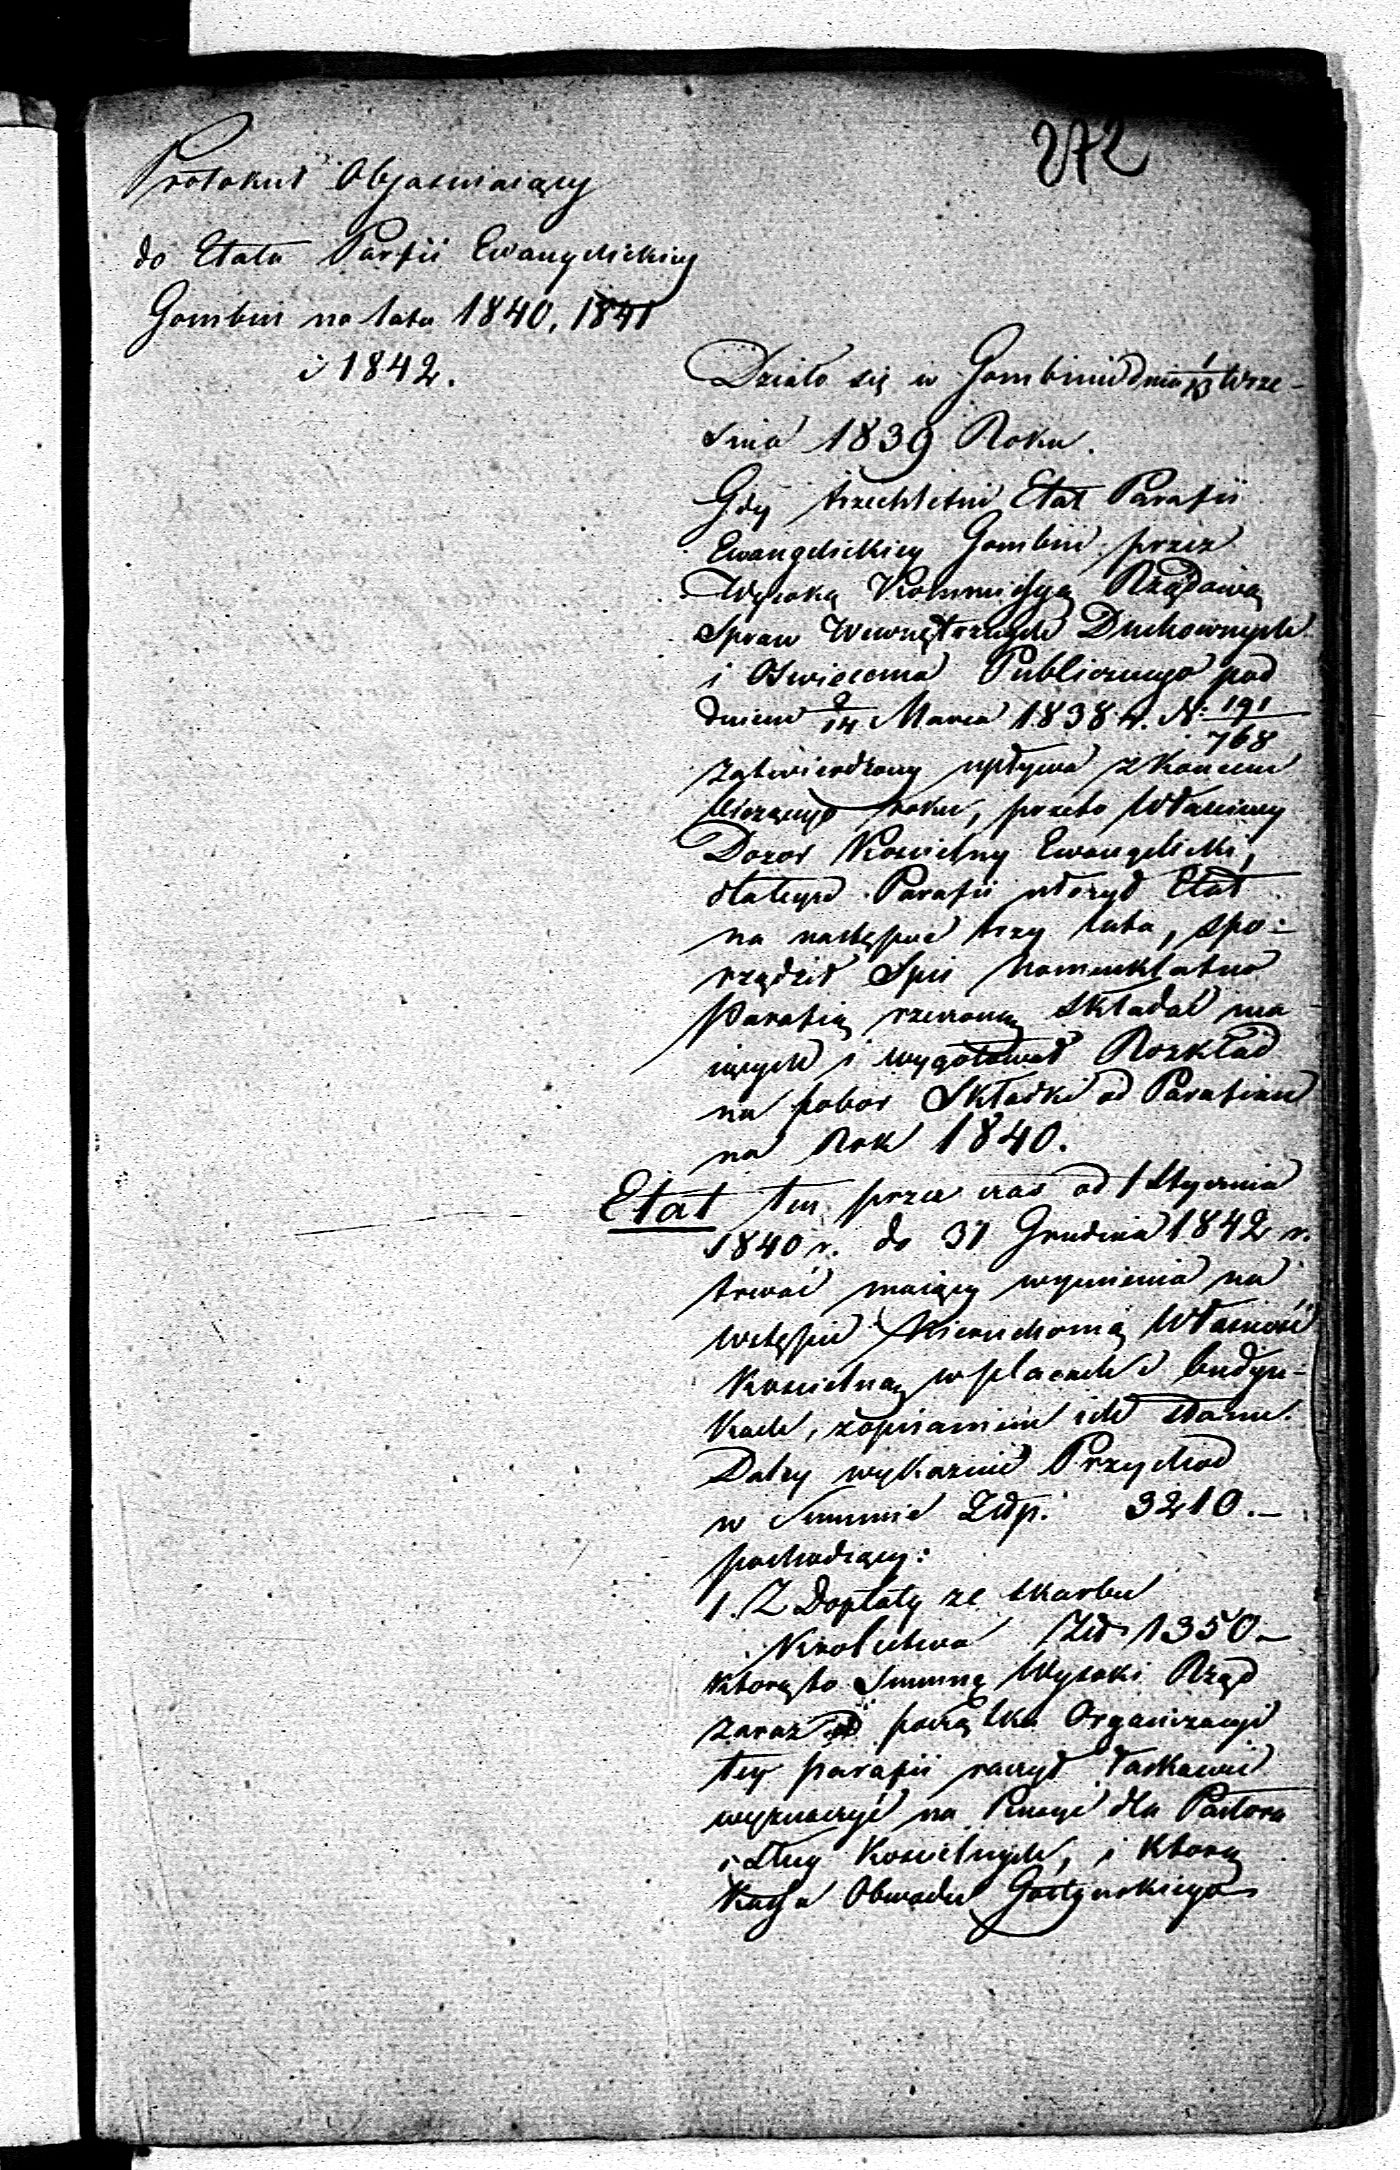 272
Protokuł Objasniaiący
do Etatu Parfii Ewangelickiey
Gombin na lata 1840, 1841
i 1842.
Działo się w Gombinie dnia 1/13 Wrze-
snia 1839 Roku.
Gdy trzechletni Etat Parafii
Ewangelickiey Gombin przez
Wysoką Kommissyą Rządową
Spraw Wewnętrznych Duchownych
i Oswiecenia Publicznego pod
dniem 2/14 Marca 1838 r. N: 191/768
zatwierdzony upływa z koncem
bieżącego roku, przeto Właściwy
Dozor Kościelny Ewangelicki,
dla teyże Parafii ułożył Etat
na następne trzy lata, spo-
rządził Spis
Parafią rzeczoną składać ma
iących i wygotował Rozkład
na pobor Składki od Parafian
na Rok 1840.
Etat ten przez czas od 1 Stycznia
1840 r. do 31 Grudnia 1842 r.
trwać maiący wymienia na
wstępie Nieruchomą Własność
Kościelną w placach i budyn-
kach, z opisaniem ich stanu.
Daley wykazuie Przychod
w Summie Złp. 3210.—
pochodzący:
1. Z Dopłaty ze skarbu
Krolestwa Złp 1350—
którąto Summę Wysoki Rząd
zaraz od początku Organizacyi
tey parafii raczył łaskawie
wyznaczyć na Pensye dla Pastora
i Sług Kościelnych, i którą
Kassa Obwodu Gostynskiego